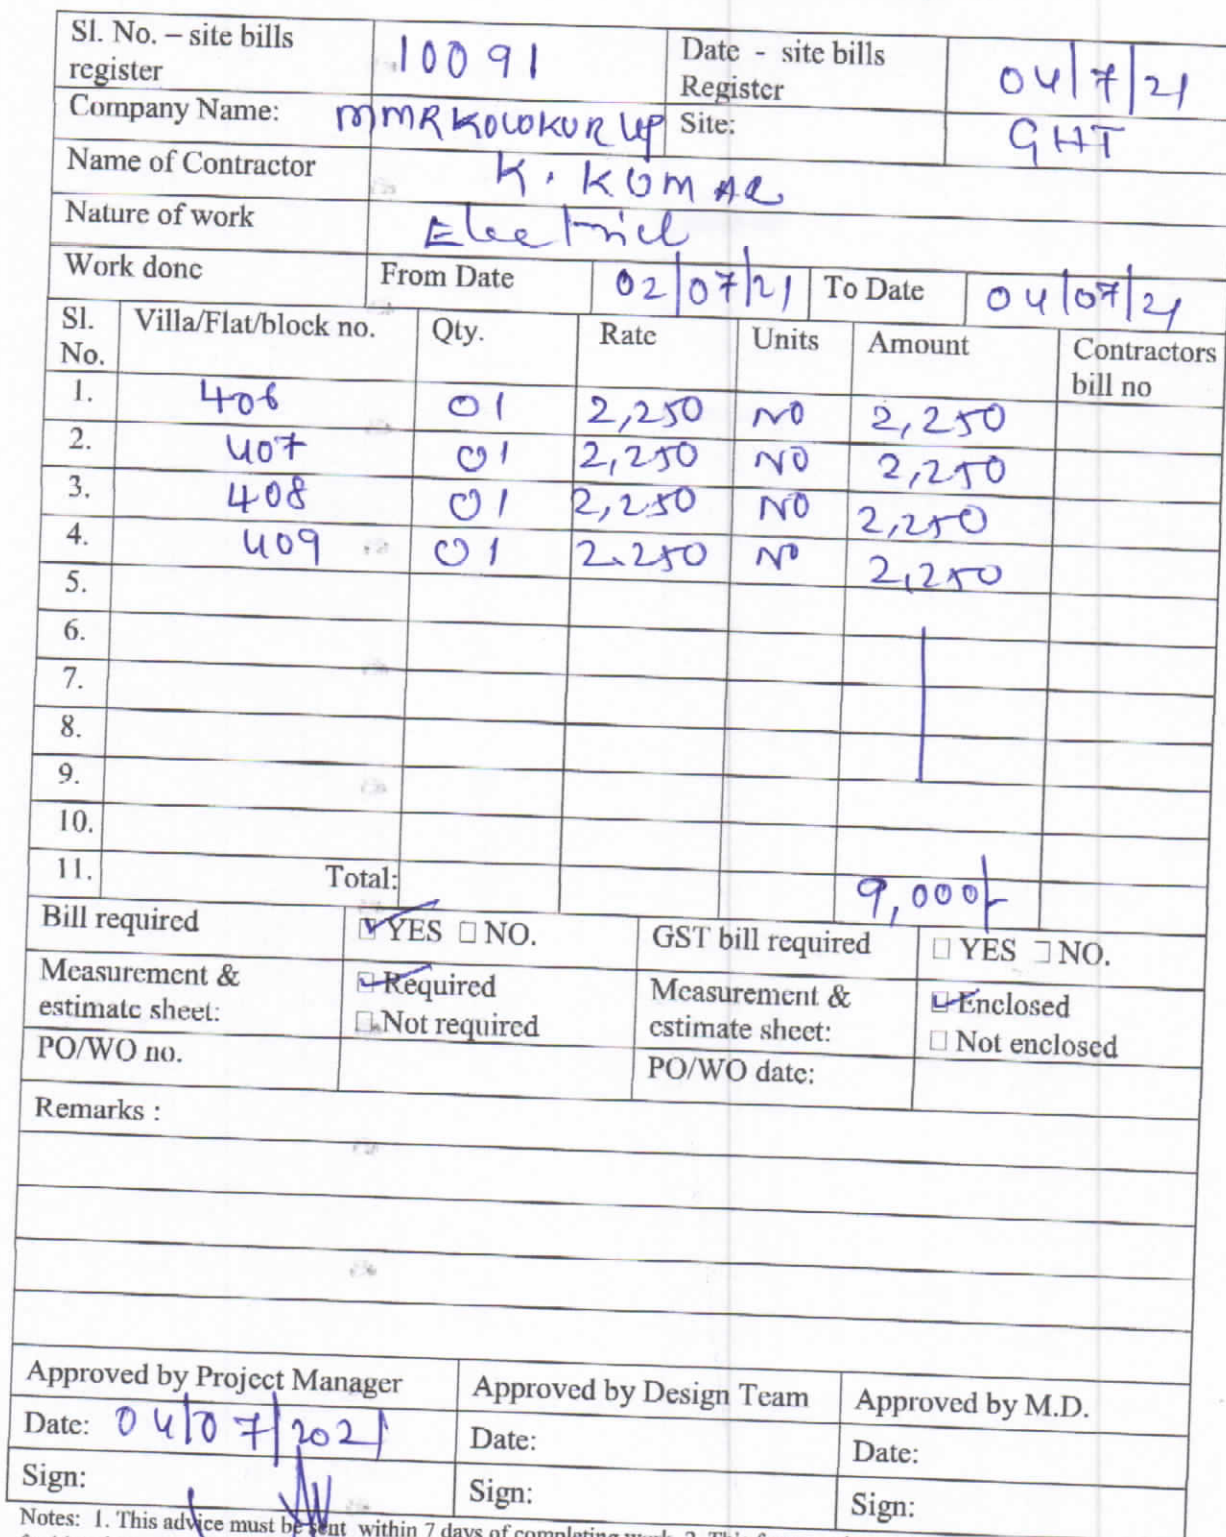 Sl. No. – site bills register 10091 Date - site bills Register 04/7/21
Company Name: MMR KOLOKUR LLP Site: GHT
Name of Contractor K. KUMAR
Nature of work Electrical
Work done From Date 02/07/21 To Date 04/07/21
Sl. No. Villa/Flat/block no. Qty. Rate Units Amount Contractors bill no
1. 406 01 2,250 NO 2,250
2. 407 01 2,250 NO 2,250
3. 408 01 2,250 NO 2,250
4. 409 01 2.250 NO 2,250
5.
6.
7.
8.
9.
10.
11. Total: 9,000/-
Bill required ☑ YES ☐ NO. GST bill required ☐ YES ☐ NO.
Measurement & estimate sheet: ☑ Required ☐ Not required Measurement & estimate sheet: ☑ Enclosed ☐ Not enclosed
PO/WO no. PO/WO date:
Remarks :
Approved by Project Manager Approved by Design Team Approved by M.D.
Date: 04/07/2021 Date: Date:
Sign: Sign: Sign:
Notes: 1. This advice must be sent within 7 days of completing work. 2. This